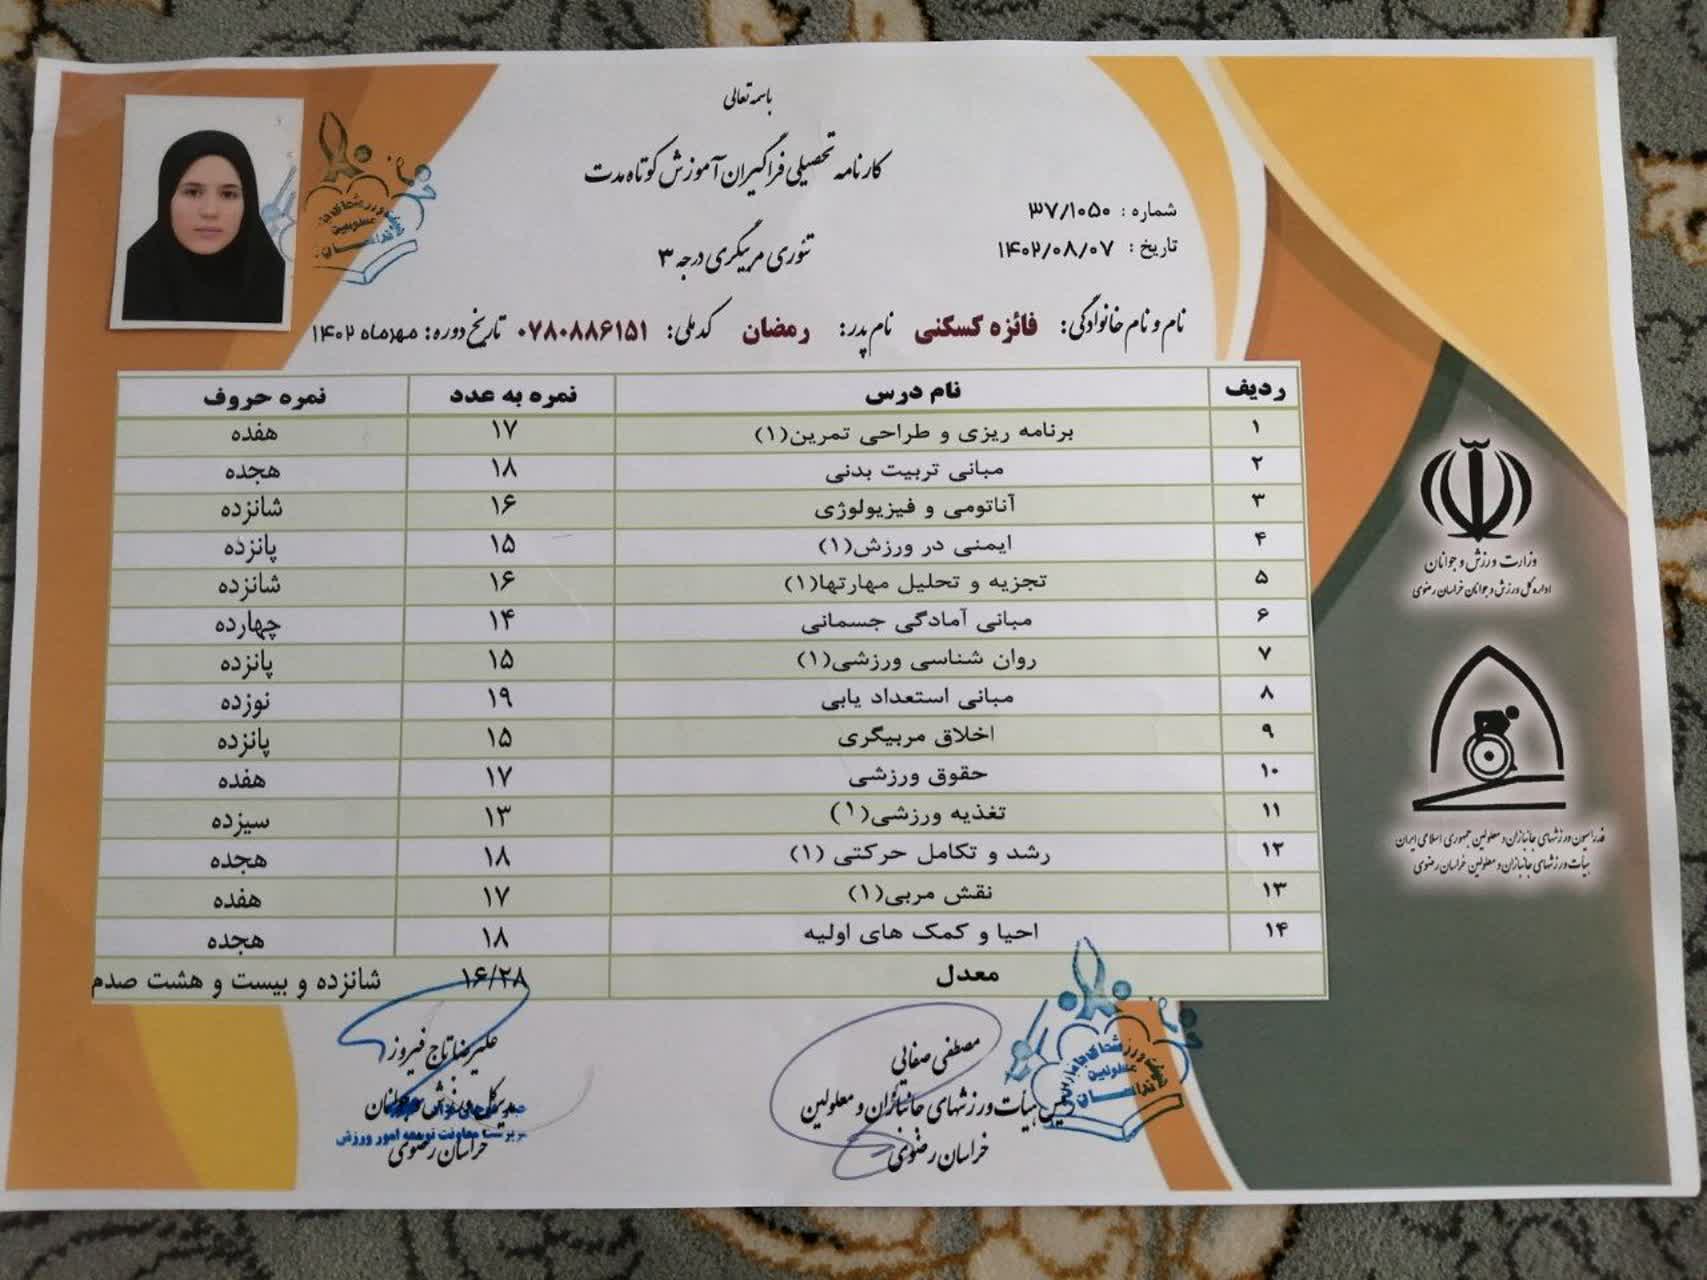 باسمه تعالی
کارنامه تحصیلی فراگیران آموزش کوتاه مدت
شماره : ۳۷/۱۰۵۰
تاریخ : ۱۴۰۲/۰۸/۰۷
تئوری مربیگری درجه ۳
نام و نام خانوادگی: فائزه کسکنی نام پدر: رمضان کد ملی: ۰۷۸۰۸۸۶۱۵۱ تاریخ دوره: مهرماه ۱۴۰۲
ردیف نام درس نمره به عدد نمره حروف
۱ برنامه ریزی و طراحی تمرین(۱) ۱۷ هفده
۲ مبانی تربیت بدنی ۱۸ هجده
۳ آناتومی و فیزیولوژی ۱۶ شانزده
۴ ایمنی در ورزش(۱) ۱۵ پانزده
۵ تجزیه و تحلیل مهارتها(۱) ۱۶ شانزده
۶ مبانی آمادگی جسمانی ۱۴ چهارده
۷ روان شناسی ورزشی(۱) ۱۵ پانزده
۸ مبانی استعداد یابی ۱۹ نوزده
۹ اخلاق مربیگری ۱۵ پانزده
۱۰ حقوق ورزشی ۱۷ هفده
۱۱ تغذیه ورزشی(۱) ۱۳ سیزده
۱۲ رشد و تکامل حرکتی (۱) ۱۸ هجده
۱۳ نقش مربی(۱) ۱۷ هفده
۱۴ احیا و کمک های اولیه ۱۸ هجده
معدل ۱۶/۲۸ شانزده و بیست و هشت صدم
وزارت ورزش و جوانان
اداره کل ورزش و جوانان خراسان رضوی
فدراسیون ورزشهای جانبازان و معلولین جمهوری اسلامی ایران
هیأت ورزشهای جانبازان و معلولین خراسان رضوی
مصطفی صفایی
رئیس هیأت ورزشهای جانبازان و معلولین
خراسان رضوی
علیرضا تاج فیروز
مدیرکل ورزش و جوانان
خراسان رضوی
سرپرست معاونت توسعه امور ورزش